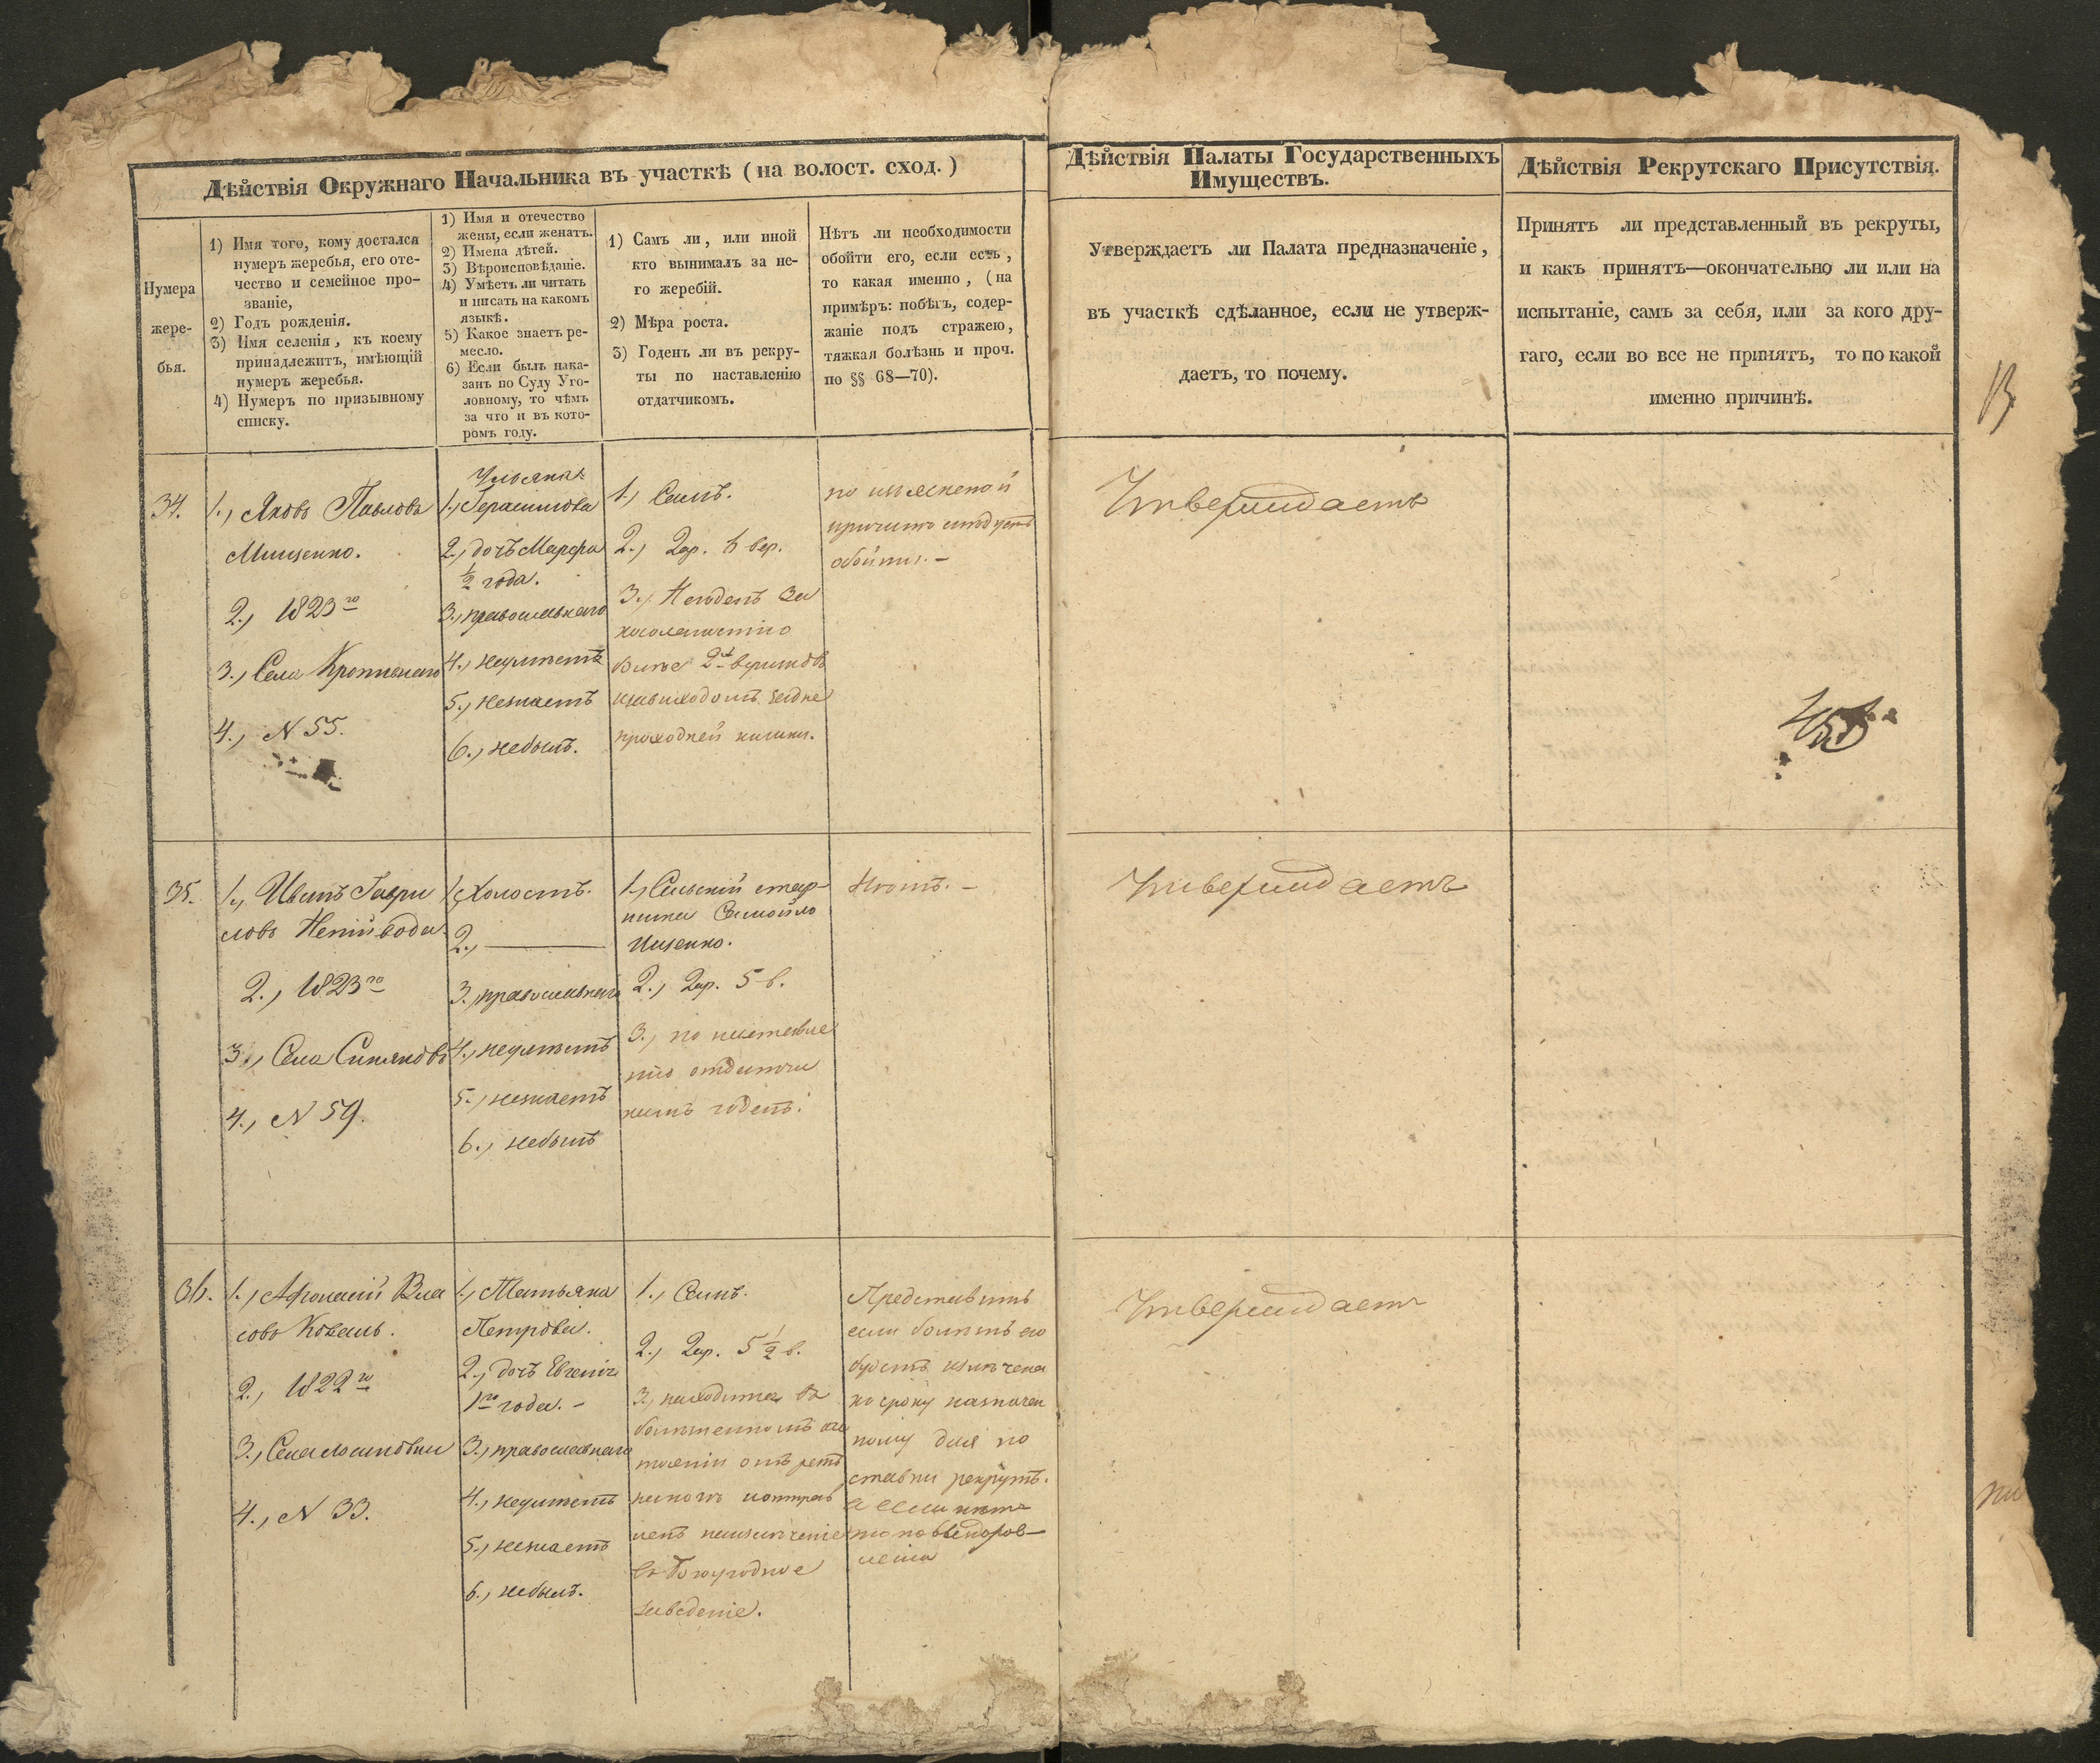 Дѣйствія Окружнаго Начальника въ участкѣ (на волост. сход.)
Нумера
жере-
бья.
1) Имя того, кому достался
нумеръ жеребья, его оте-
чество и семейное про-
званіе,
2) Годъ рожденія.
3) Имя селенія, къ коему
принадлежитъ, имѣющій
нумеръ жеребья.
4) Нумеръ по призывному
списку.
1) Имя и отечество
жены, если женатъ.
2) Имена дѣтей.
3) Вѣроисповѣданіе.
4) Умѣетъ ли читать
и писать на какомъ
языкѣ.
5) Какое знаетъ ре-
месло.
6) Если былъ нака-
занъ по Суду Уго-
ловному, то чѣмъ
за что и въ кото-
ромъ году.
1) Самъ ли, или иной
кто вынималъ за не-
го жеребій.
2) Мѣра роста.
3) Годенъ ли въ рекру-
ты по наставленію
отдатчикомъ.
Нѣтъ ли необходимости
обойти его, если есть,
то какая именно, (на
примѣръ: побѣгъ, содер-
жаніе подъ стражею,
тяжкая болѣзнь и проч.
по §§ 68—70).
Дѣйствія Палаты Государственныхъ
Имуществъ.
Утверждаетъ ли Палата предназначеніе,
въ участкѣ сдѣланное, если не утверж-
даетъ, то почему.
Дѣйствія Рекрутскаго Присутствія.
Принятъ ли представленный въ рекруты,
и какъ принятъ—окончательно ли или на
испытаніе, самъ за себя, или за кого дру-
гаго, если во все не принятъ, то по какой
именно причинѣ.
34.
1., Яковъ Павловъ
Мищенко.
2., 1823го
3., Села Кропивнаго
4., N 55.
Ульяна
1., Герасимова
2., дочь Марфа
½ года.
3., православнаго
4., неумѣетъ
5., незнаетъ
6., небылъ.
1., Самъ.
2., 2ар. 6 вер.
3., Негоденъ за
ниже 2хъ вершковъ
проходней кишки.
причинѣ слѣдуетъ
обойти. —
Утверждаетъ
35.
1., Иванъ Гаври
ловъ Непийвода
2., 1823го
3., Села Синяковъ
4., N 59.
1., Холостъ.
2., ———
3., православнаго
4., неумѣетъ
5., незнаетъ
6., небылъ
1., Сельскій стар-
шина Самойло
Ищенко.
2., 2ар. 5 в.
3., по наставле
нію отдатчи
комъ годенъ.
Нѣтъ. —
Утверждаетъ
36.
1., Афонасій Вла
совъ Коваль.
2., 1822го
3., Села
4., N 33.
1., Татьяна
Петрова.
2., дочь Евгенія
1го года. —
3., православнаго
4., неумѣетъ
5., незнаетъ
6., небылъ.
1., Самъ.
2., 2ар. 5 ½ в.
3., находится въ
болѣзненномъ со
стояніи отъ
въ Богоугодное
заведеніе.
Представить
если болѣзнь его
будетъ излѣчена
къ сроку назначен
ному для по
ставки рекрутъ.
а если нѣтъ
то по выздоров-
леніи
Утверждаетъ